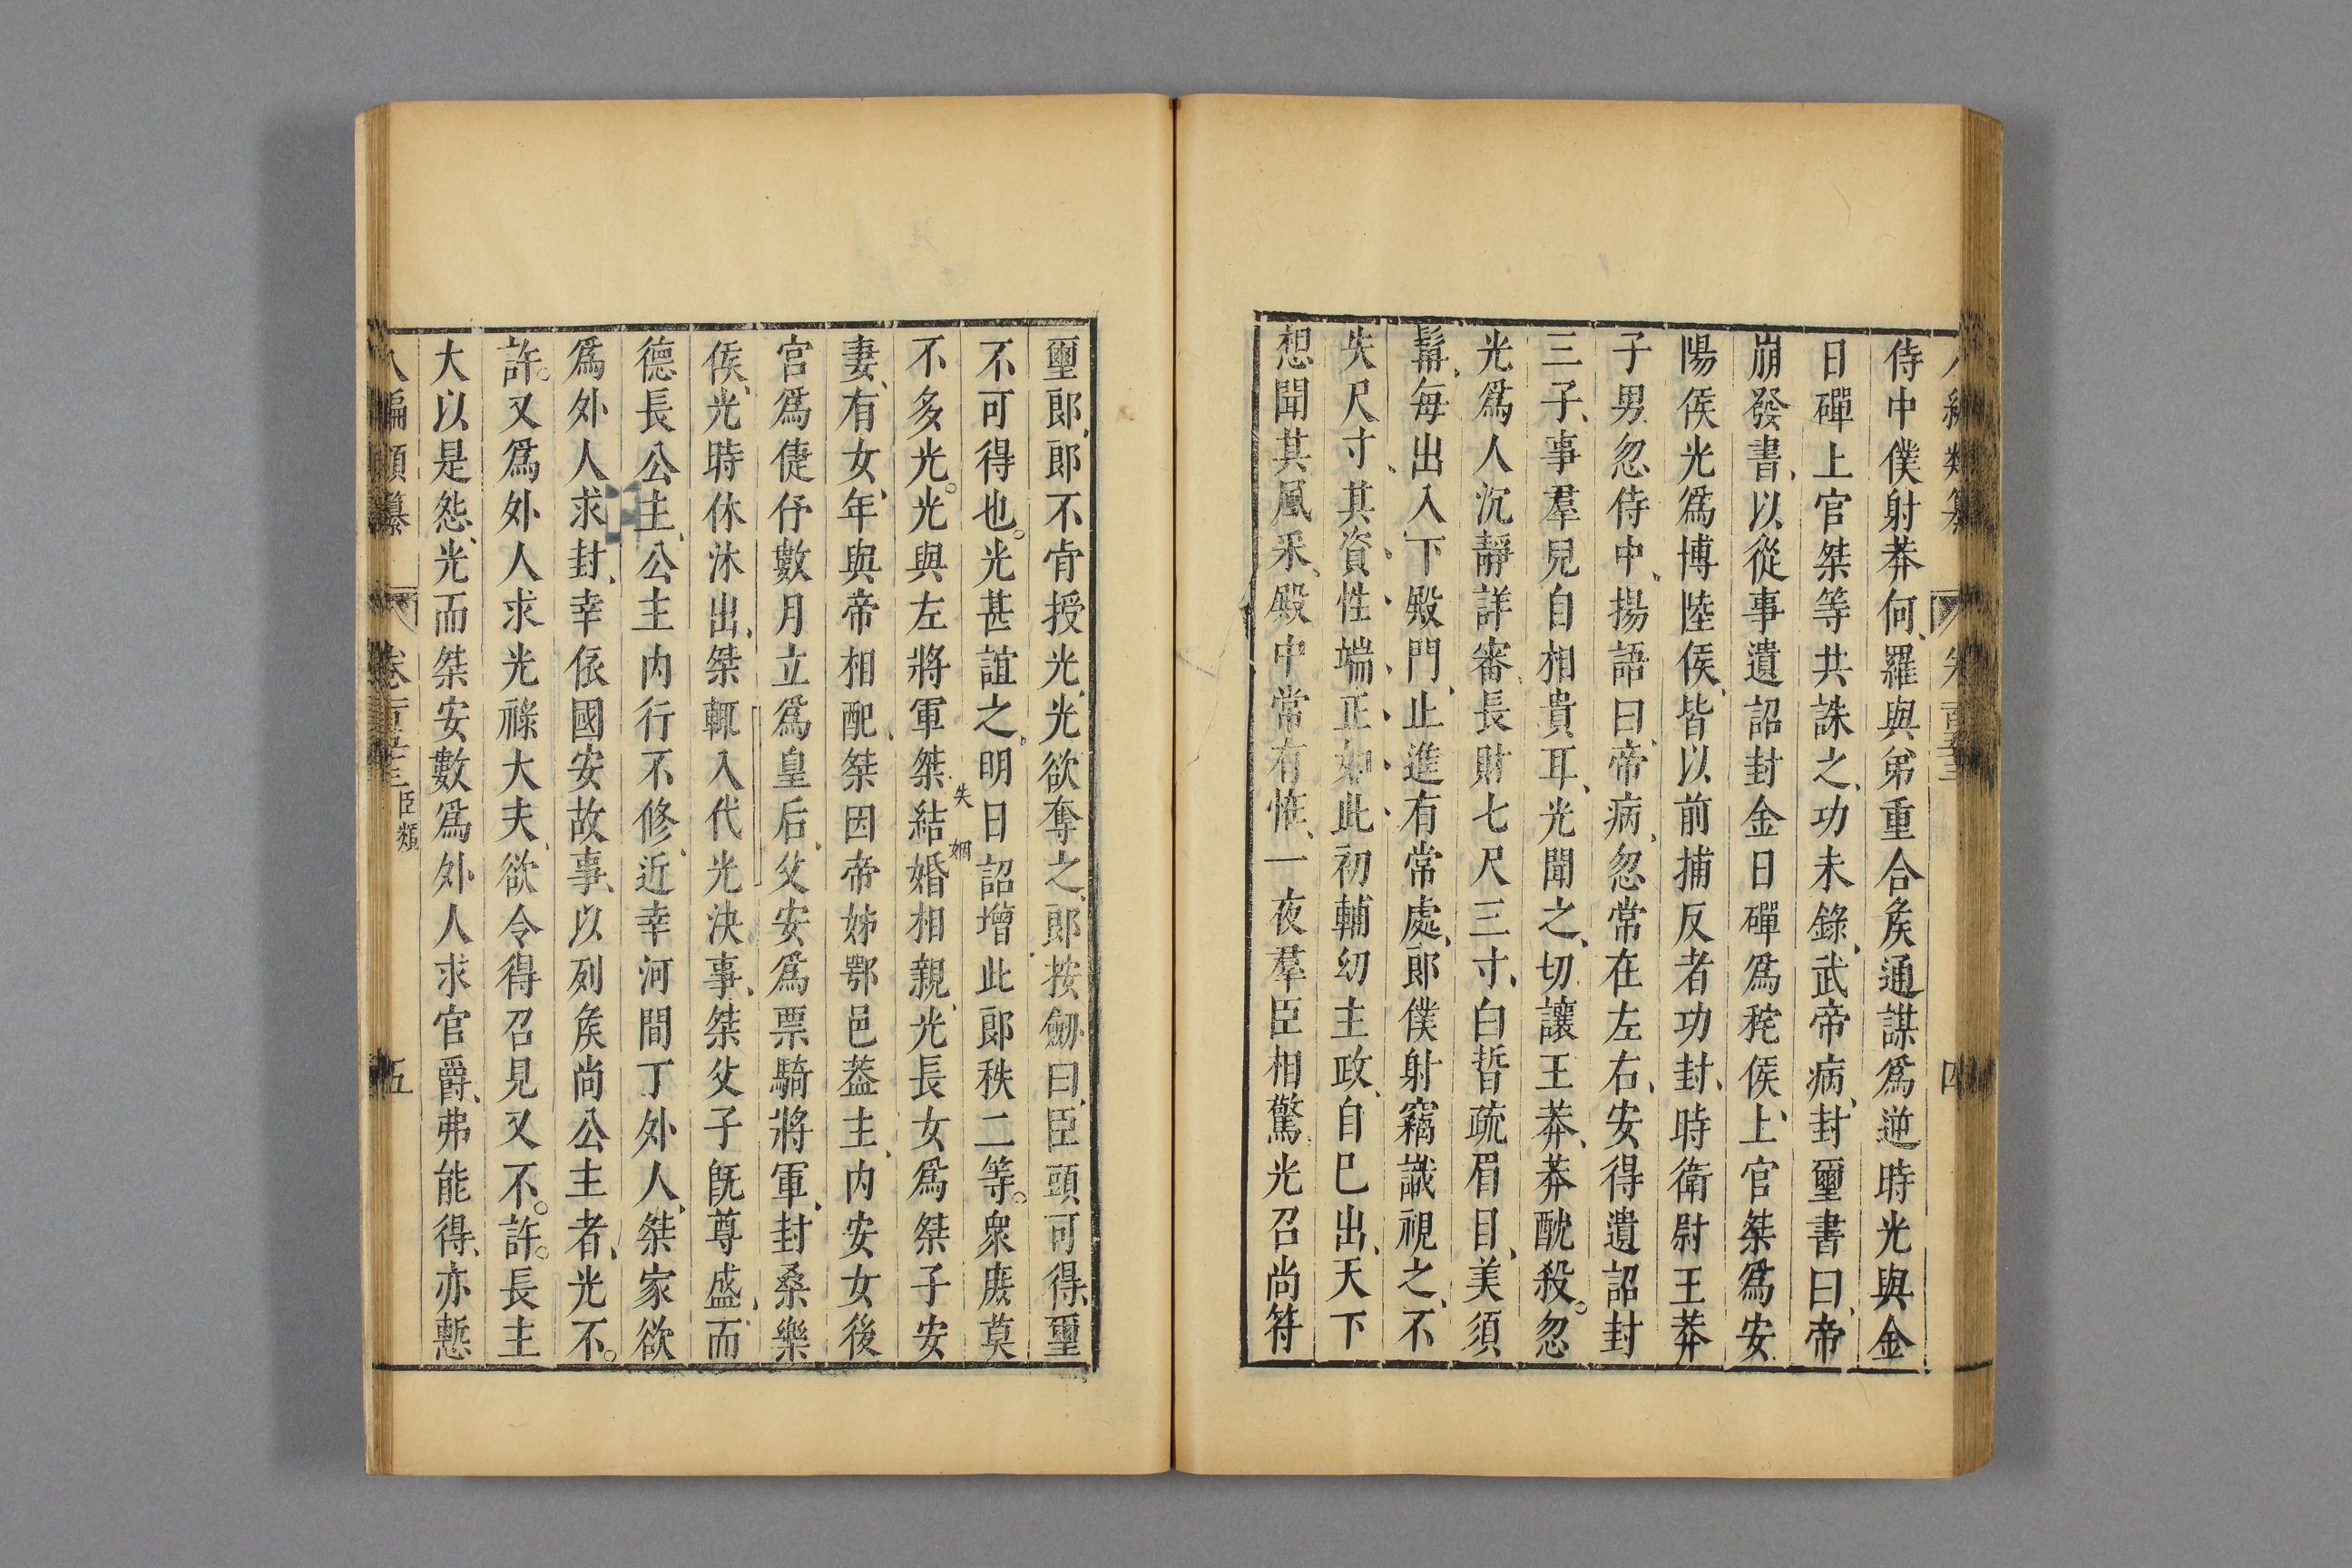 侍中僕射莽何、羅與弟重合矦通謀爲逆時光與金
日磾上官桀等共誅之、功未錄、武帝病、封璽書曰、帝
崩發書、以從事遺詔封金日磾爲秺侯、上官桀爲安
陽侯光爲博陸侯、皆以前捕反者功封、時衛尉王莽
子男忽侍中、揚語曰、帝病、忽常在左右、安得遺詔封
三子、事羣兒自相貴耳、光聞之、切讓王莽、莽酖殺。忽
光爲人沉靜詳審、長財七尺三寸、白晳疏眉目、美須
髯、每出入下殿門、止進有常處、郎僕射竊識視之、不
失尺寸、其資性端正如此初輔幼主政、自巳出、天下
想聞其風采、殿中常有恠、一夜羣臣相驚光召尚符
璽郎、郎不肯授光、光欲奪之、郎按劒曰、臣頭可得、璽
不可得也。光甚誼之、明日詔增此郎秩二等。衆庻莫
不多光。光與左將軍桀結婚相親、光長女爲桀子安
失 姻
妻、有女、年與帝相配、桀因帝姊鄂邑蓋主、内安女後
宮爲倢伃數月立爲皇后、父安爲票騎將軍、封桑樂
侯、光時休沐出、桀輒入代光决事、桀父子旣尊盛、而
德長公主、公主内行不修、近幸河間丁外人、桀家欲
爲外人求封、幸依國安故事、以列矦尚公主者、光不。
許。又爲外人求光祿大夫、欲令得召見又不。許。長主
大以是怨、光而桀安數爲外人求官爵、弗能得、亦慙
八編類纂 卷一百五十三 臣類 五